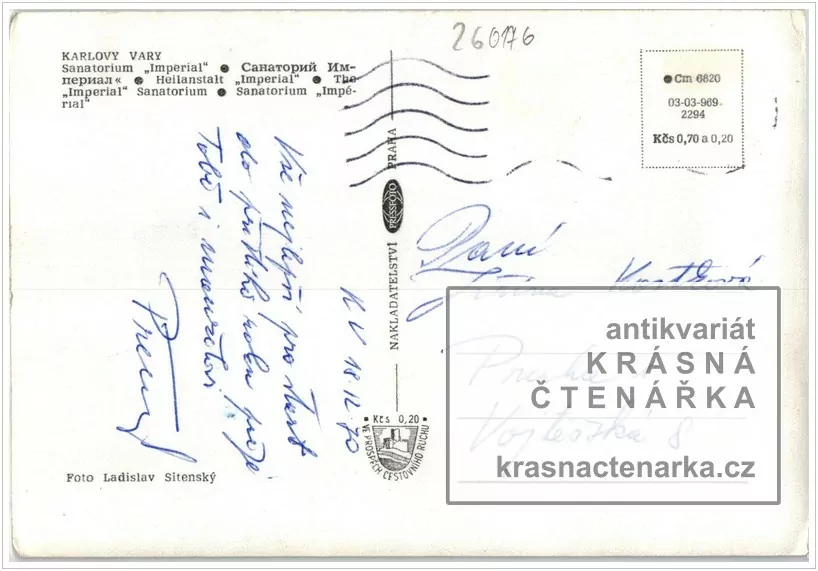 260176
KARLOVY VARY
Sanatorium „Imperial“ ● Санаторий Им-
периал« ● Heilanstalt „Imperial“ ● The
„Imperial“ Sanatorium ● Sanatorium „Impé-
rial“
● Cm 6820
03-03-969
2294
Kčs 0,70 a 0,20
K V 18.12.70
Vše nejlepší pro start
do příštího roku přeje
Tobě i manželovi
NAKLADATELSTVÍ PRESSFOTO PRAHA
Paní
Jiřina
Praha
8
• Kčs 0,20 •
VE PROSPĚCH CESTOVNÍHO RUCHU
Foto Ladislav Sitenský
antikvariát
KRÁSNÁ
ČTENÁŘKA
krasnactenarka.cz